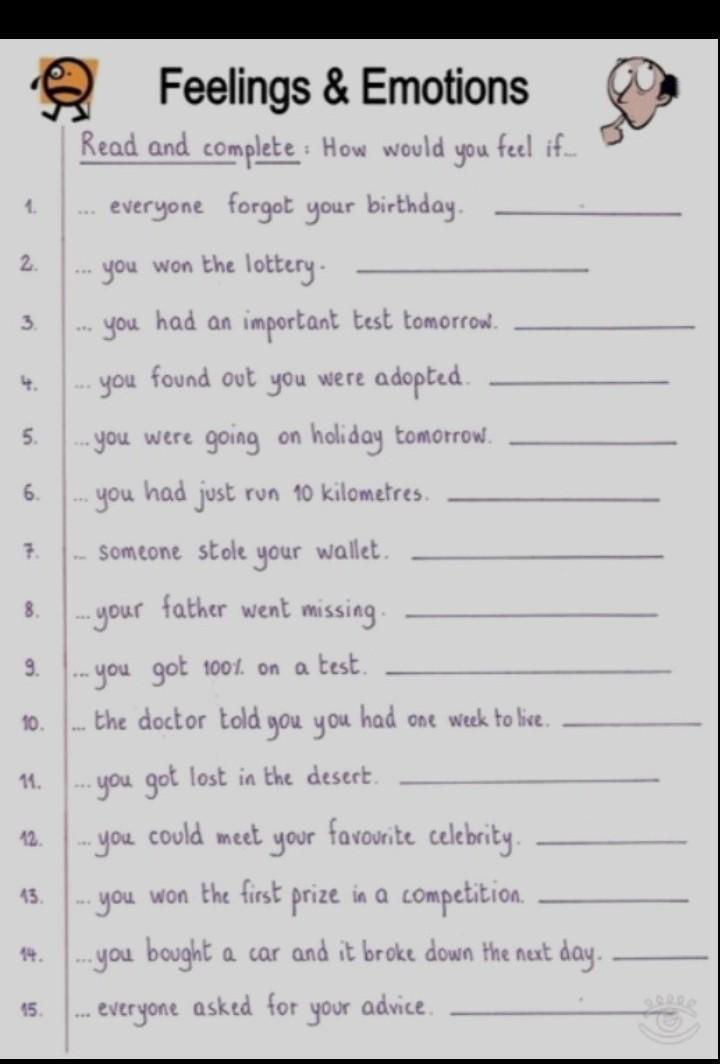 Feelings & Emotions
Read and complete : How would you feel if...
1. ... everyone forgot your birthday. ___
2. ... you won the lottery. ___
3. ... you had an important test tomorrow. ___
4. ... you found out you were adopted. ___
5. ... you were going on holiday tomorrow. ___
6. ... you had just run 10 kilometres. ___
7. ... someone stole your wallet. ___
8. ... your father went missing. ___
9. ... you got 100% on a test. ___
10. ... the doctor told you you had one week to live. ___
11. ... you got lost in the desert. ___
12. ... you could meet your favourite celebrity. ___
13. ... you won the first prize in a competition. ___
14. ... you bought a car and it broke down the next day. ___
15. ... everyone asked for your advice. ___